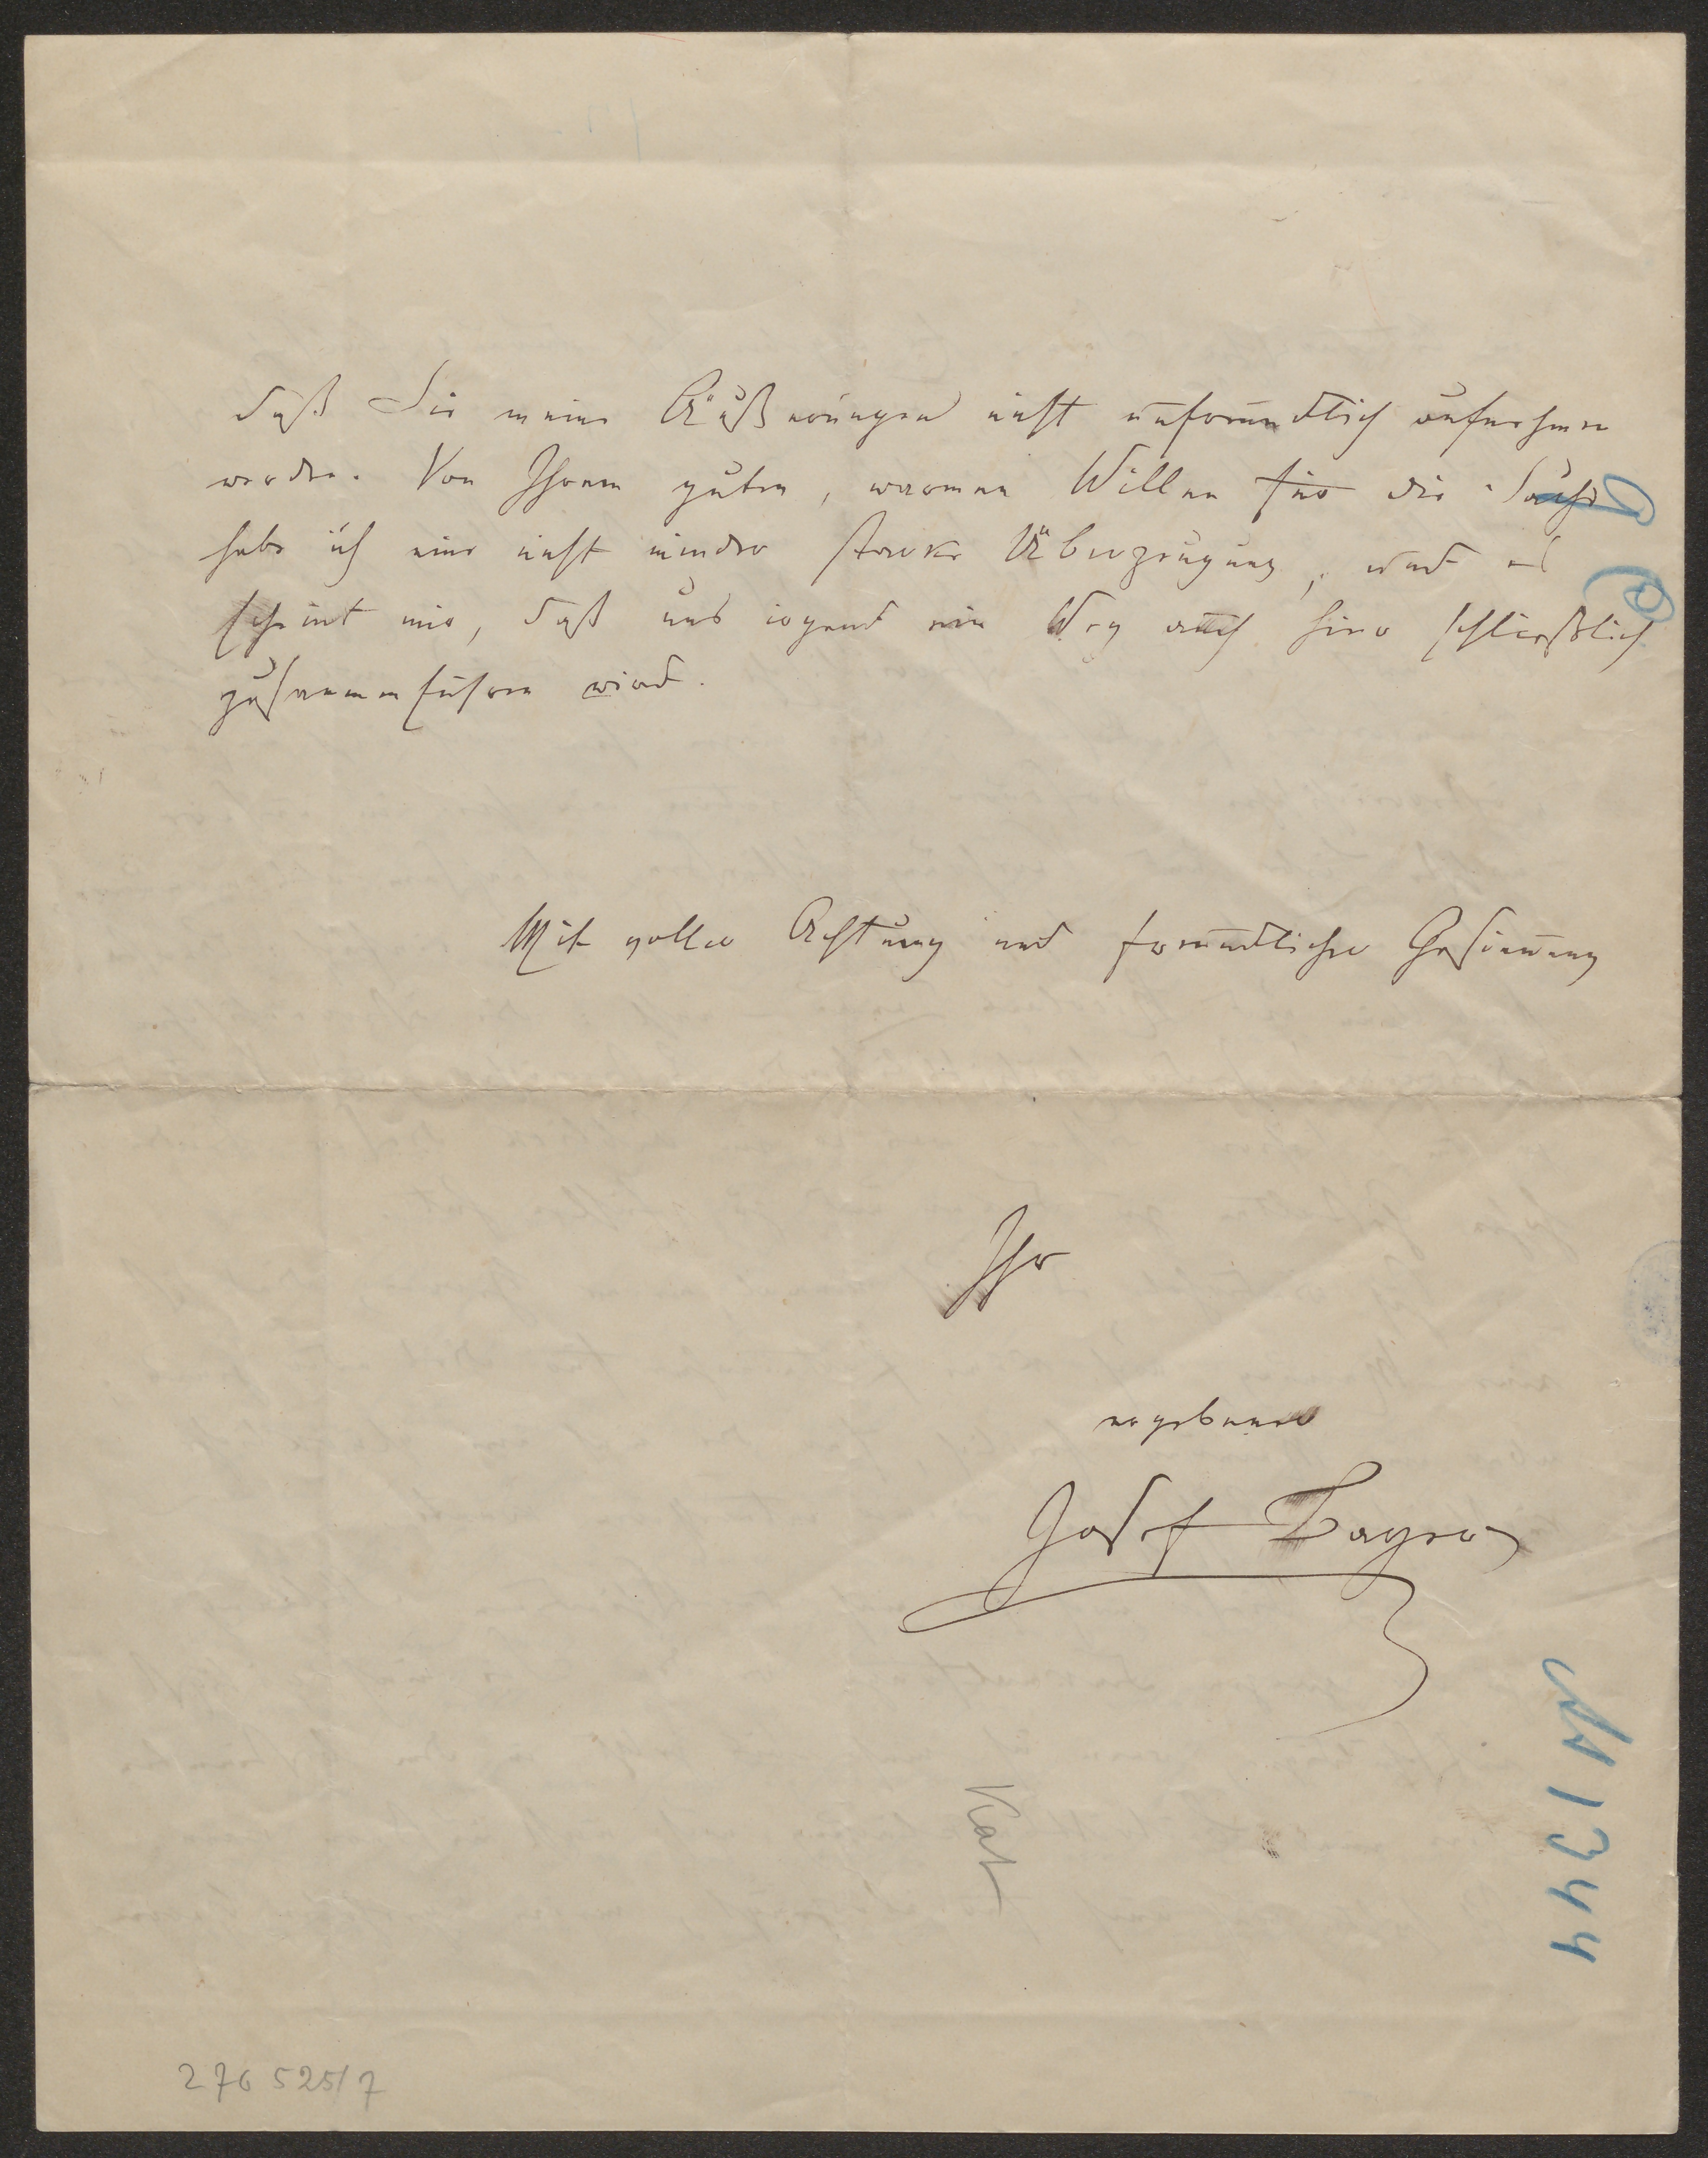 daß Sie meine Äußerungen nicht unfreundlich aufnehmen
werden. Von Ihrem guten, warmen Willen für die Sache
habe ich eine nicht minder starke Überzeugung, und es
scheint mir, daß uns irgend ein Weg auch hier schließlich
zusammenführen wird.
Mit voller Achtung und freundlicher Gesinnung
Ihr
ergebener
Josef Bayer
Kat
276 525/7